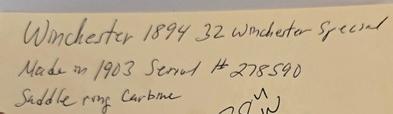 Winchester 1894 32 Winchester Special
Made in 1903 Serial # 278590
Saddle ring Carbine